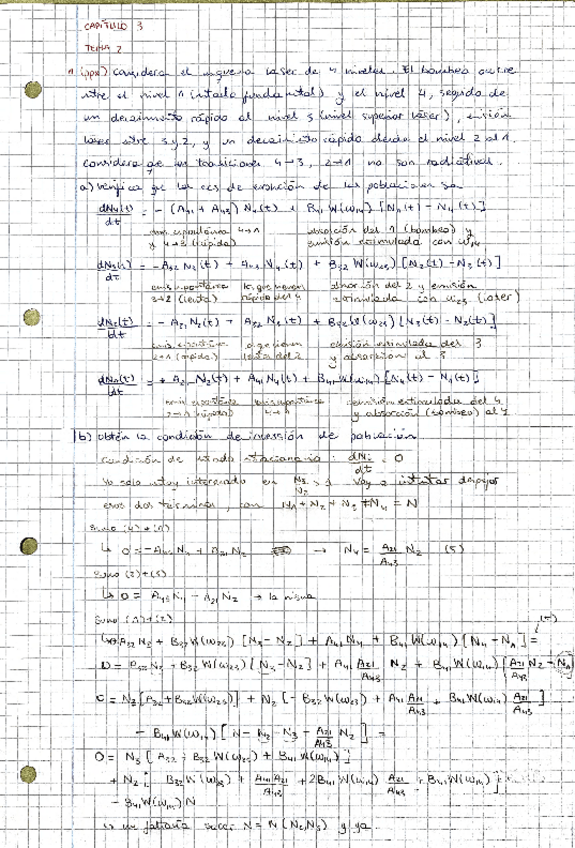 CAPÍTULO 3
TEMA 2
1 (ppx) considera el esquema láser de 4 niveles. El bombeo ocurre
entre el nivel 1 (estado fundamental) y el nivel 4, seguido de
un decaimiento rápido al nivel 3 (nivel superior láser), emisión
láser entre 3 y 2, y un decaimiento rápido desde el nivel 2 al 1.
considera que las transiciones 4→3, 2→1 no son radiativas.
a) Verifica que las ecs de evolución de las poblaciones son
dN4(t)/dt = - (A41 + A43) N4(t) + B41 W(ω14) [N1(t) - N4(t)]
emis espontánea 4→1 absorción del 1 (bombeo) y
y 4→3 (rápida) emisión estimulada con ω14
dN3(t)/dt = -A32 N3(t) + A43 N4(t) + B32 W(ω23) [N2(t) - N3(t)]
emis espontánea lo que viene absorción del 2 y emisión
3→2 (lenta) rápido del 4 estimulada con ω23 (láser)
dN2(t)/dt = - A21 N2(t) + A32 N3(t) + B32 W(ω23) [N3(t) - N2(t)]
emis espontánea emisión estimulada del 3
2→1 (rápida) y absorción al 3
dN1(t)/dt = + A21 N2(t) + A41 N4(t) + B41 W(ω14) [N4(t) - N1(t)]
emis espontánea emis espontánea emisión estimulada del 4
2→1 (rápida) 4→1 y absorción (bombeo) al 1
b) Obtén la condición de inversión de población
Condición de estado estacionario: dNi/dt = 0
Yo solo estoy interesado en N3/N2 > 1 Voy a intentar despejar
esos dos términos, con N1 + N2 + N3 + N4 = N
Sumo (4)+(1)
↳ 0 = -A43 N4 + A21 N2 → N4 = A21/A43 N2 (5)
Sumo (2)+(3)
↳ 0 = A43 N4 - A21 N2 → la misma
Sumo (1)+(2)
A32 N3 + B32 W(ω23) [N3 - N2] + A41 N4 + B41 W(ω14) [N4 - N1] =
0 = A32 N3 + B32 W(ω23) [N3 - N2] + A41 A21/A43 N2 + B41 W(ω14) [A21/A43 N2 - N1]
0 = N3 [A32 + B32 W(ω23)] + N2 [- B32 W(ω23) + A41 A21/A43 + B41 W(ω14) A21/A43]
- B41 W(ω14) [N - N2 - N3 - A21/A43 N2] =
0 = N3 [A32 + B32 W(ω23) + B41 W(ω14)]
+ N2 [- B32 W(ω23) + A41 A21/A43 + 2B41 W(ω14) A21/A43 + B41 W(ω14)]
- B41 W(ω14) N
↳ me faltaría sacar N = N (N2, N3) y ya.